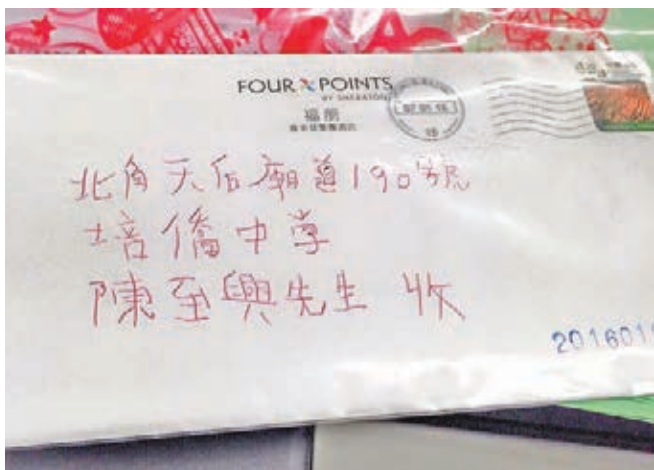 FOUR POINTS
BY SHERATON
福朋
北角天后廟道190號
培僑中学
陳至興先生 收
2016011